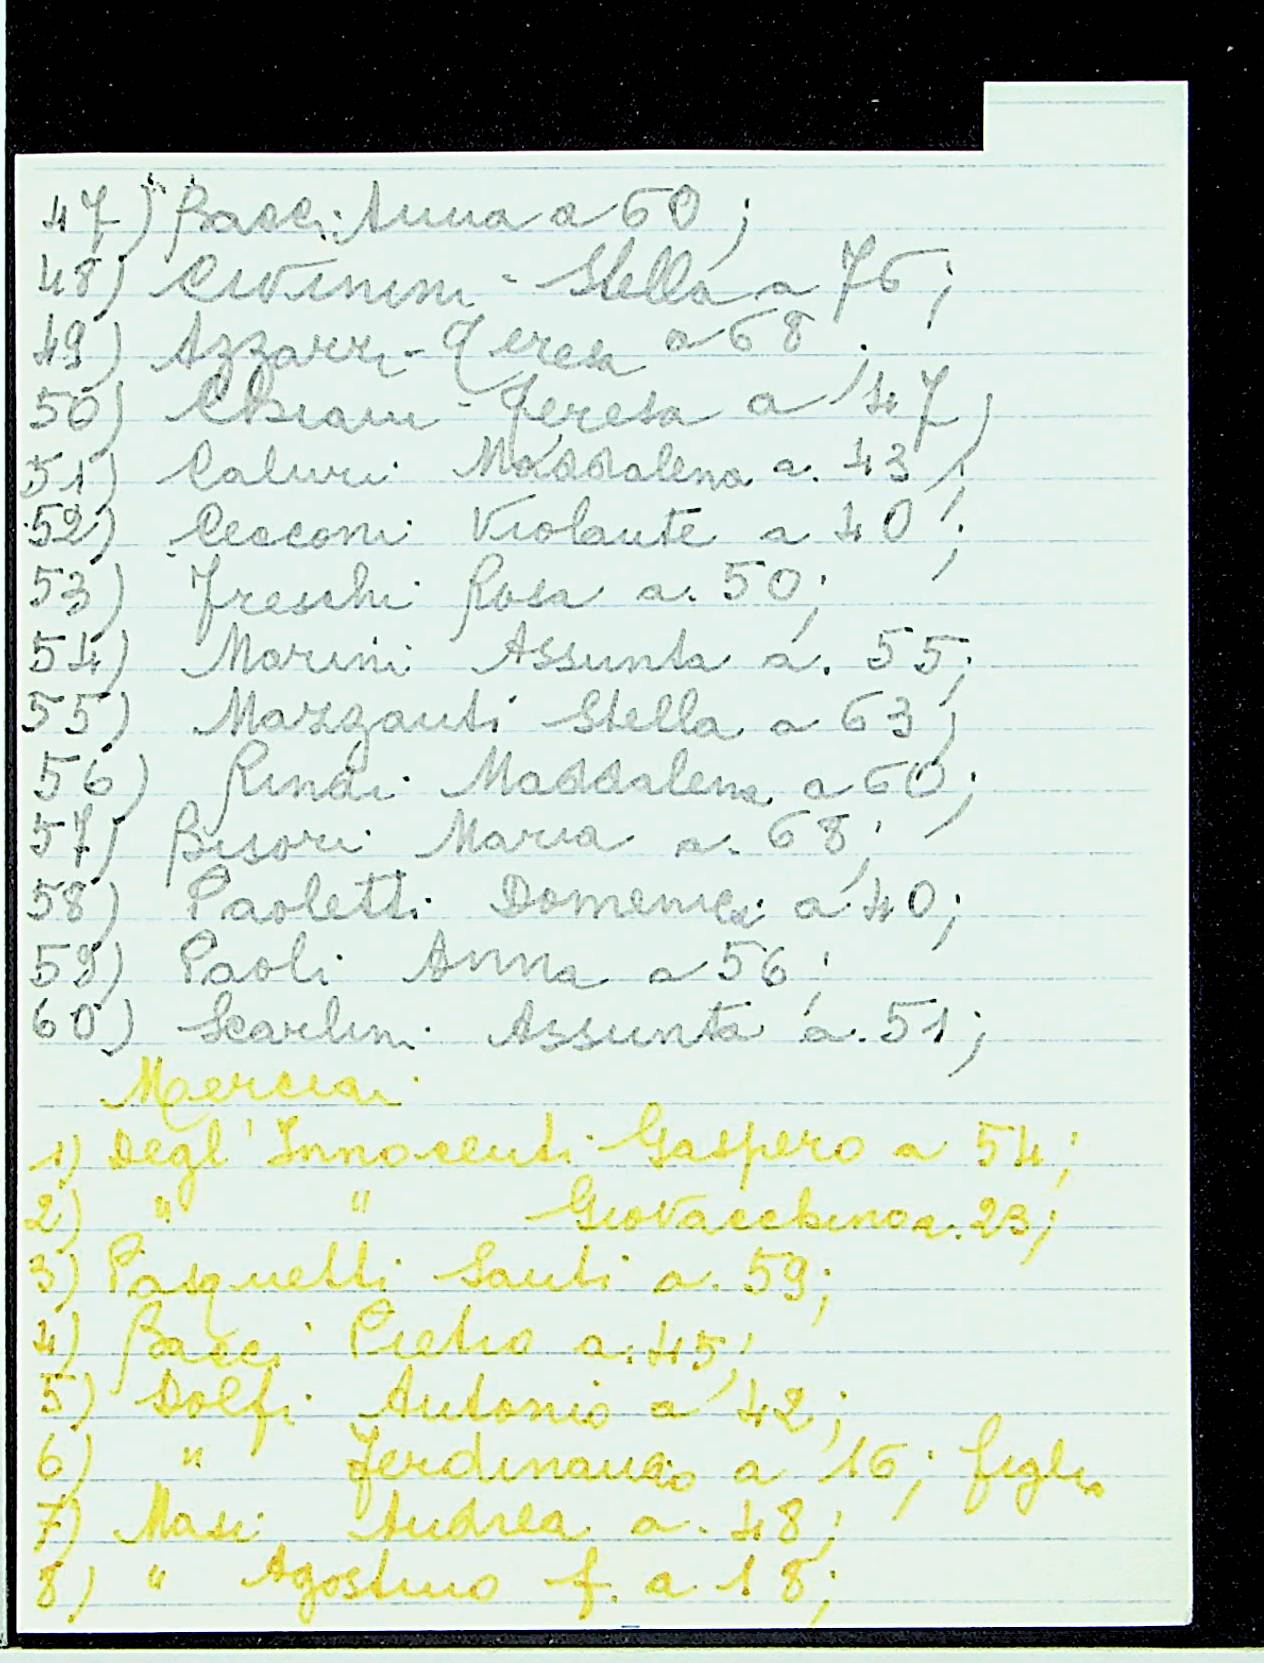 47) Bacci Anna a 60;
48) Civinini - Stella a 76;
49) Azzarri - Teresa a 68;
50) Chiani - Teresa a 47;
51) Caluri Maddalena a. 43;
52) Cecconi Violante a 40;
53) Freschi Rosa a. 50;
54) Morini Assunta a. 55;
55) Morganti Stella a 63;
56) Rindi Maddalena a 60;
57) Bisori Maria a. 68;
58) Paoletti Domenica a 40;
59) Paoli Anna a 56;
60) Scarlini Assunta a. 51;
Merciai
1) Degl'Innocenti Gaspero a 54;
2) " " Giovacchino a. 23;
3) Pasquetti Santi a. 59;
4) Bacci Pietro a. 45;
5) Dolfi Antonio a 42;
6) " Ferdinando a 16; figlio
7) Masi Andrea a. 48;
8) " Agostino f. a 18;